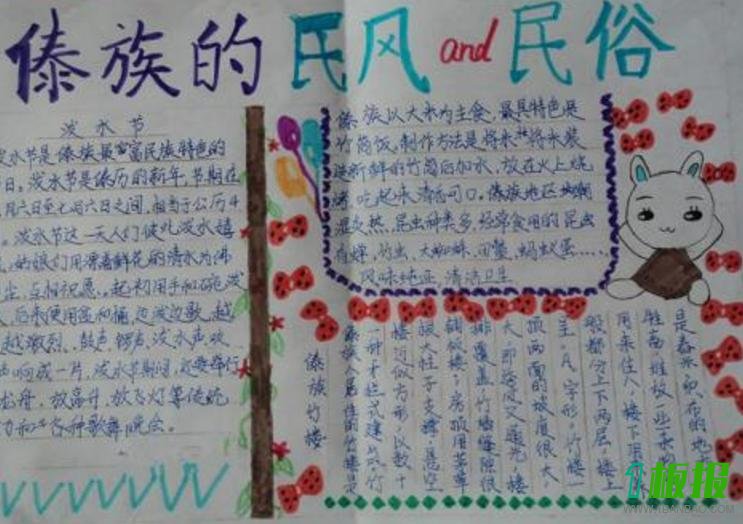 傣族的民风and民俗
泼水节
泼水节是傣族最富民族特色的
日。泼水节是傣历的新年,节期在
月六日至七月六日之间,相当于公历4
。泼水节这一天人们彼此泼水嬉
姑娘们用漂着鲜花的清水为佛
尘,互相祝愿。起初用手和碗泼
后来使用盆和桶,边泼边歌,越
越激烈,鼓声、锣声、泼水声、欢
声响成一片,泼水节期间,还要举行
龙舟、放高升、放飞灯等传统
和各种歌舞晚会。
傣族以大米为主食,最具特色是
竹筒饭。制作方法是将米将米装
进新鲜的竹筒后加水,放在火上烧
烤,吃起来清香可口。傣族地区
湿炎热,昆虫种类多,经常食用的昆虫
有蝉,竹虫,大蜘蛛,田鳖,蚂蚁蛋……
风味纯正,清洁卫生
傣族竹楼
傣族人居住的竹楼是
一种干栏式建筑竹
楼近似方形,以数十
根大柱子支撑,悬空
铺楼;房顶用茅草
排覆盖,竹墙缝隙很
大,即通风又透光,楼
顶两面的坡度很大
呈“八”字形。竹楼一
般都分上下两层,楼上
用来住人,楼下
牲畜,堆放一些
是舂米织布的地
板报
WWW.1BANBAO.COM